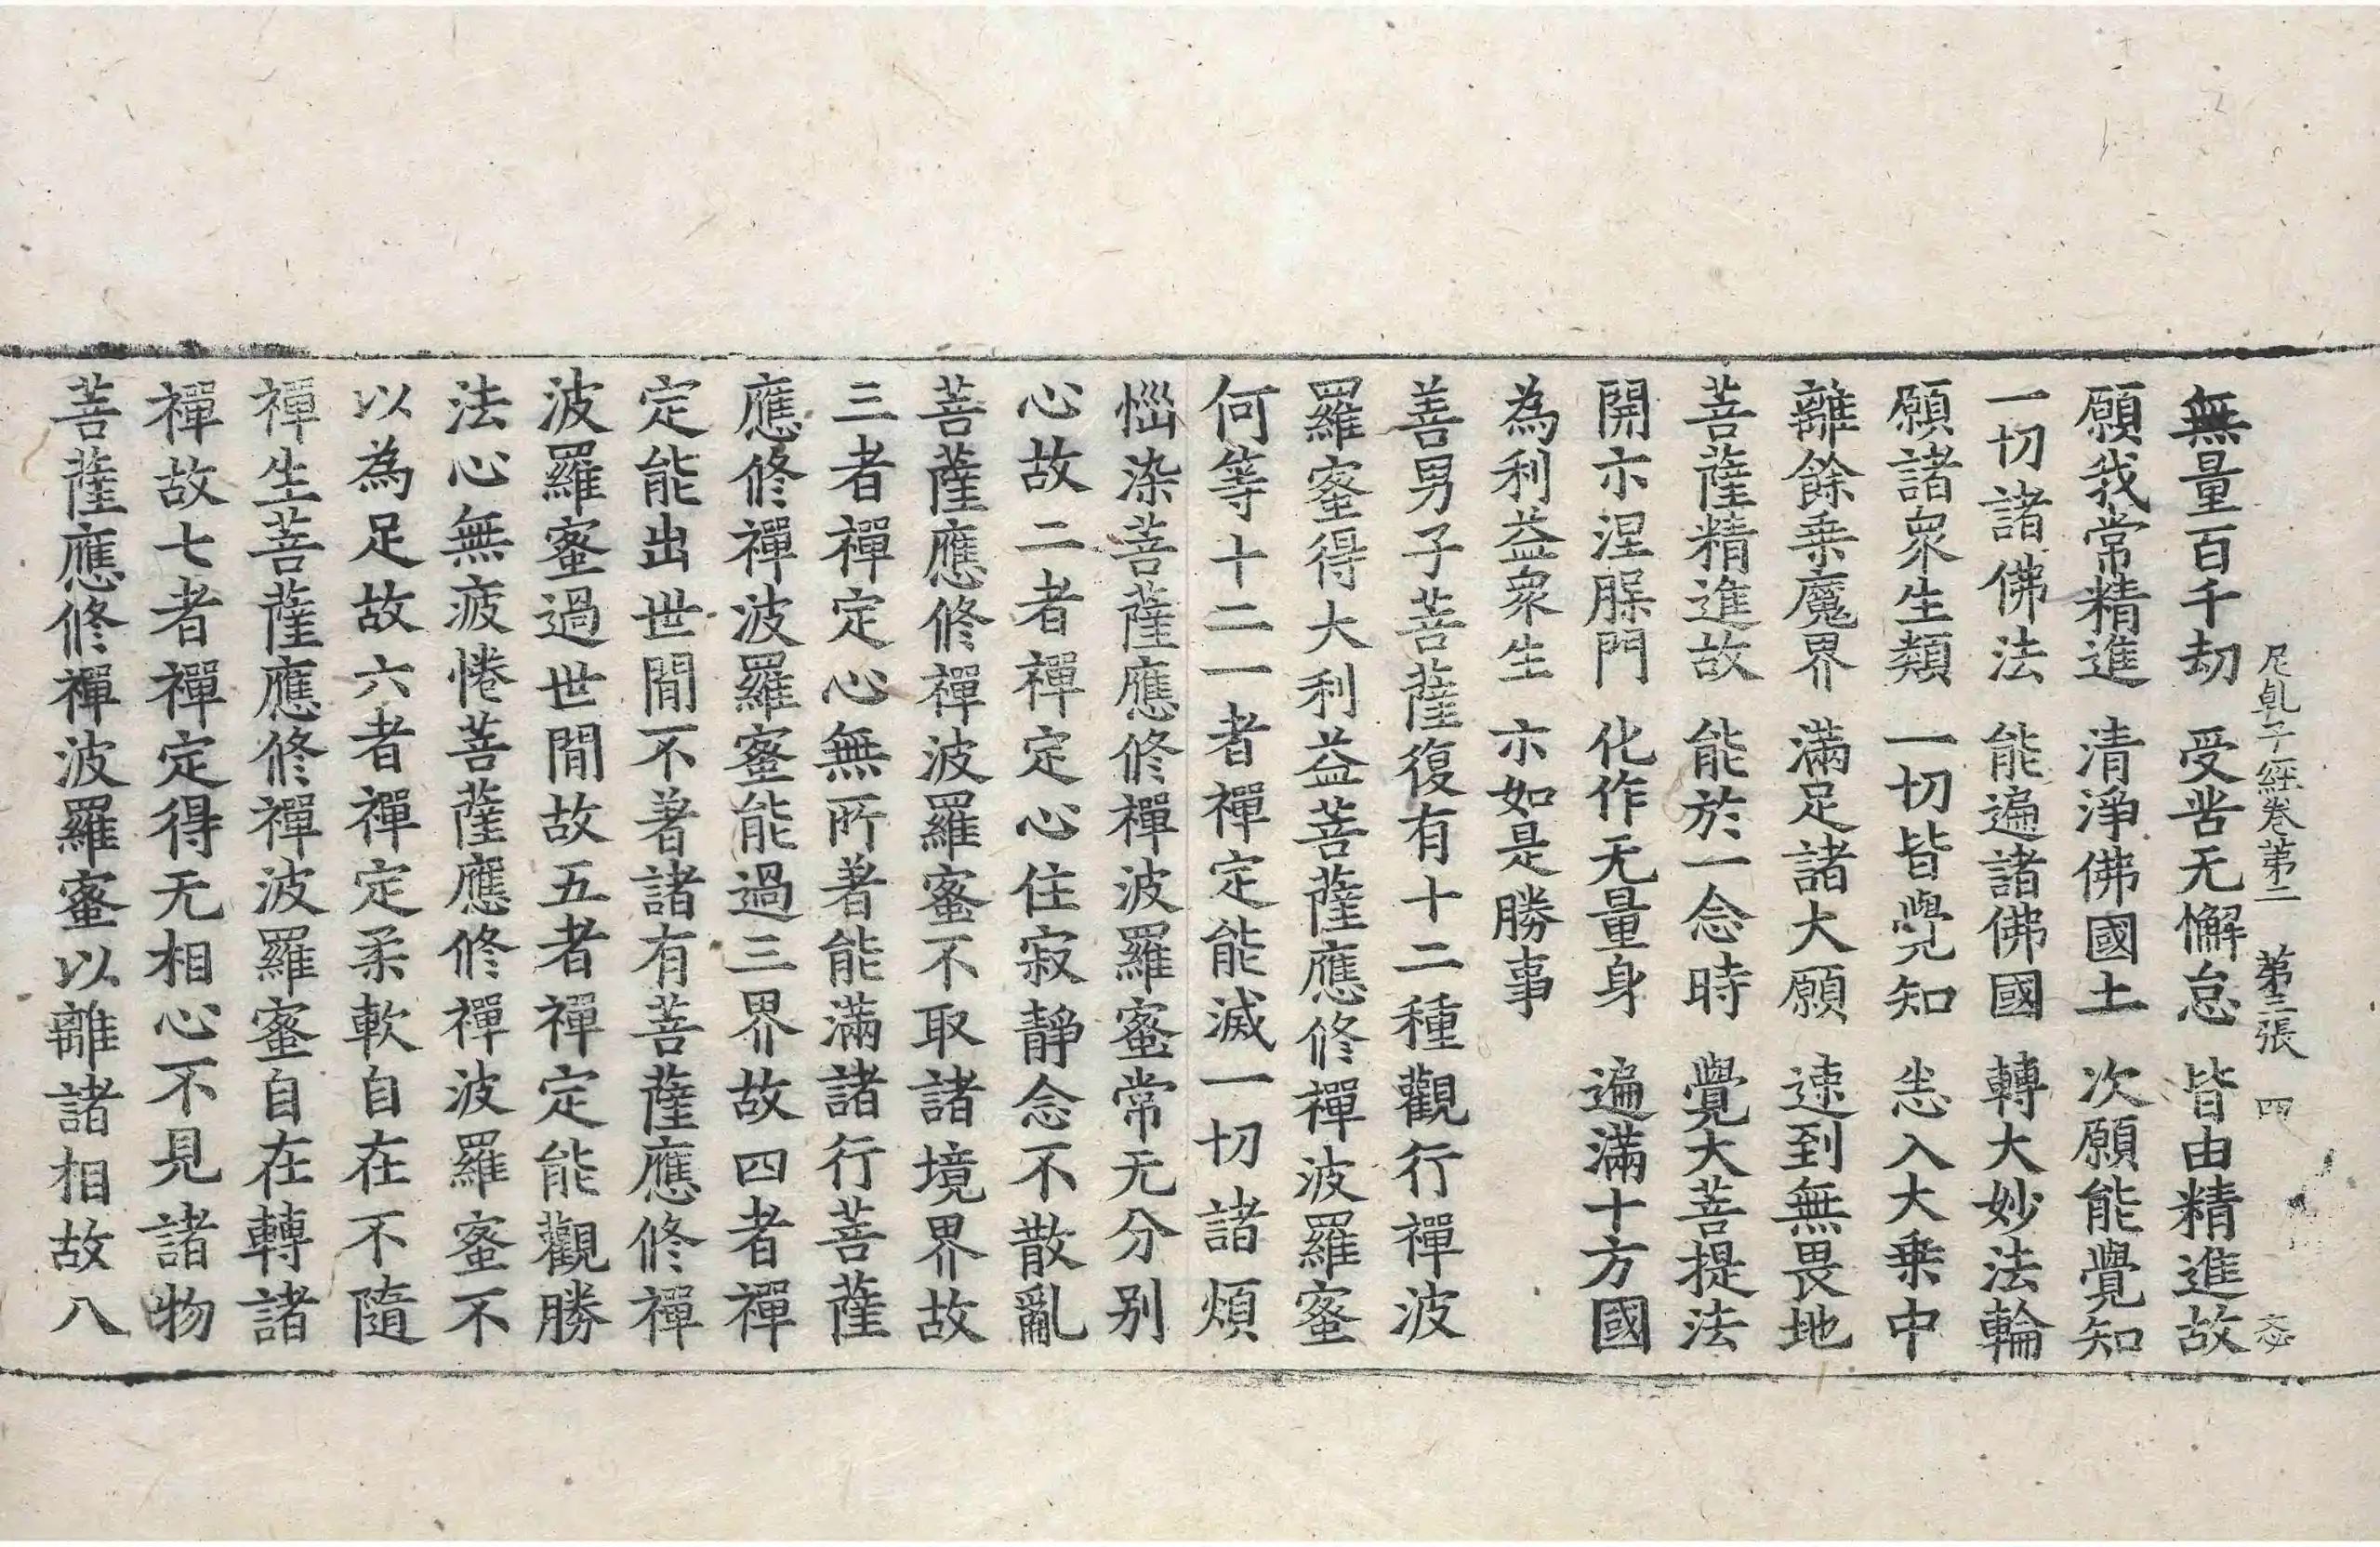 尼乹子經卷第二　第三張　四　　　
無量百千劫　受苦无懈怠　皆由精進故
願我常精進　清淨佛國土　次願能覺知
一切諸佛法　能遍諸佛國　轉大妙法輪
願諸衆生類　一切皆覺知　悉入大乗中
離餘乗魔界　滿足諸大願　速到無畏地
菩薩精進故　能於一念時　覺大菩提法
開示涅槃門　化作无量身　遍滿十方國
為利益衆生　亦如是勝事
善男子菩薩復有十二種觀行禪波
羅蜜得大利益菩薩應修禪波羅蜜
何等十二一者禪定能滅一切諸煩
惱染菩薩應修禪波羅蜜常无分别
心故二者禪定心住寂靜念不散亂
菩薩應修禪波羅蜜不取諸境界故
三者禪定心無所著能滿諸行菩薩
應修禪波羅蜜能過三界故四者禪
定能出世間不著諸有菩薩應修禪
波羅蜜過世間故五者禪定能觀勝
法心無疲惓菩薩應修禪波羅蜜不
以為足故六者禪定柔軟自在不隨
禪生菩薩應修禪波羅蜜自在轉諸
禪故七者禪定得无相心不見諸物
菩薩應修禪波羅蜜以離諸相故八